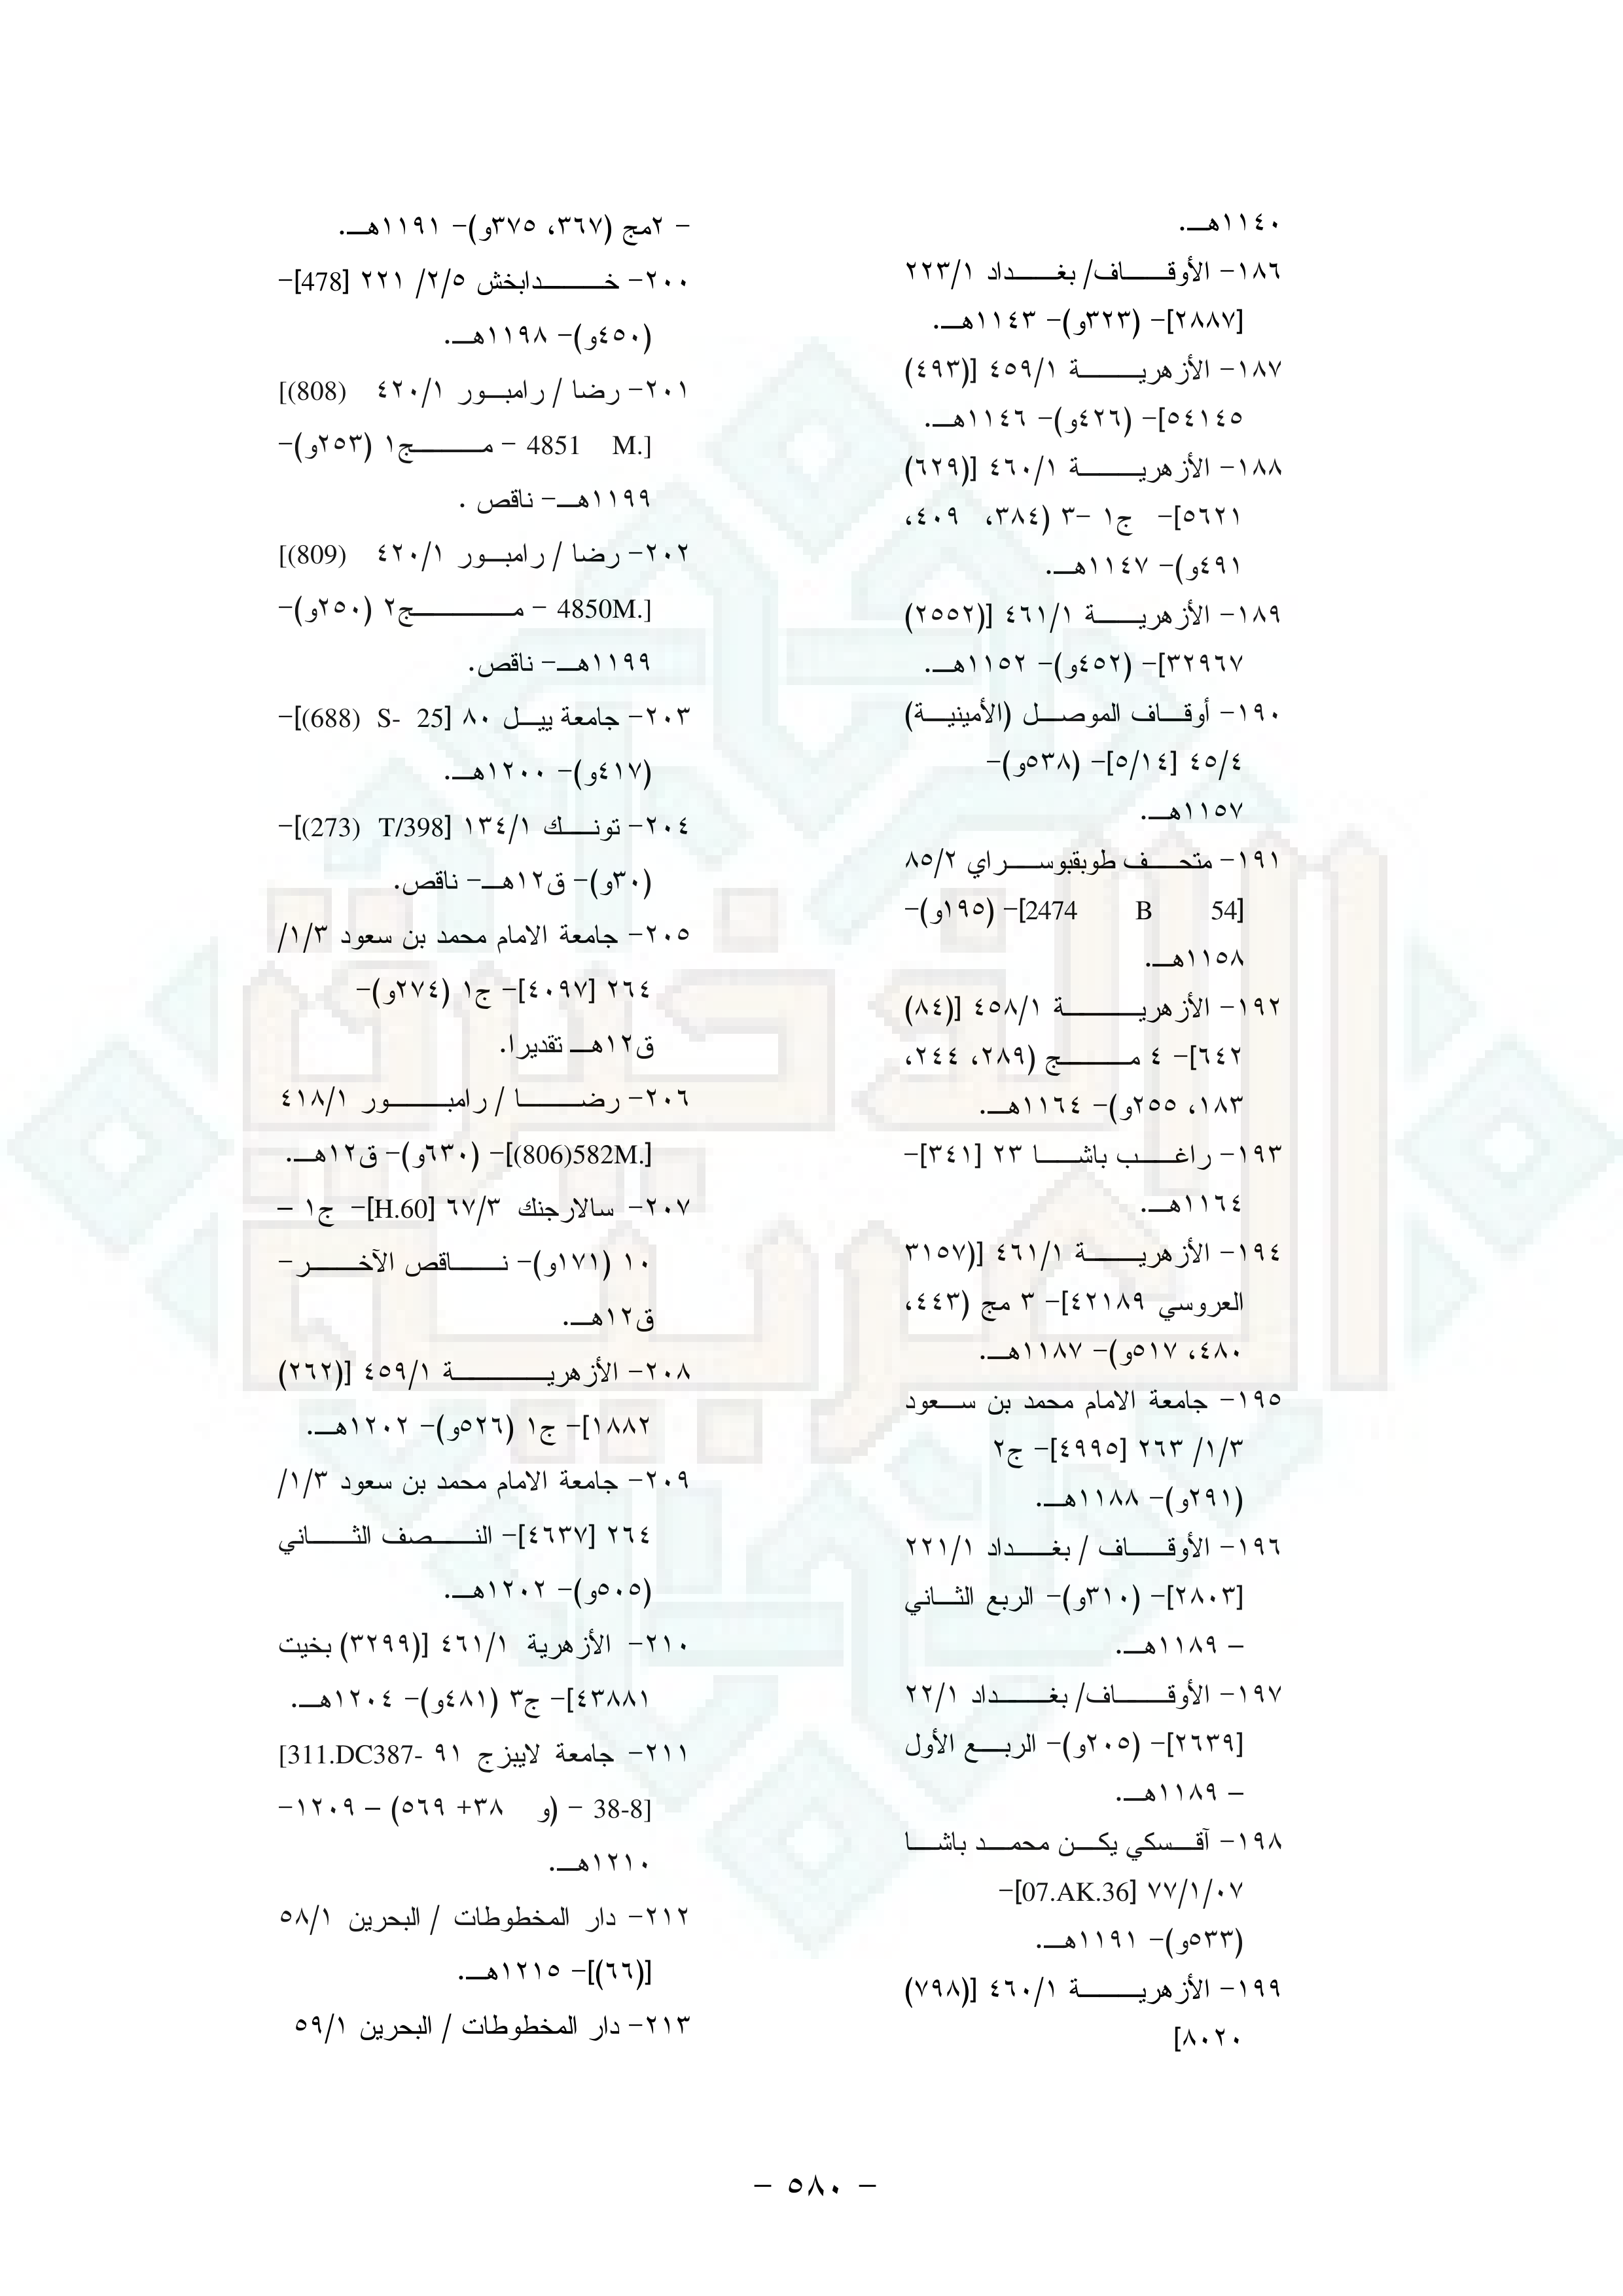 ١١٤٠هـ.
١٨٦- الأوقاف/ بغداد ٢٢٣/١
[٢٨٨٧]- (٣٢٣و)- ١١٤٣هـ.
١٨٧- الأزهرية ٤٥٩/١ [(٤٩٣)
٥٤١٤٥]- (٤٢٦و)- ١١٤٦هـ.
١٨٨- الأزهرية ٤٦٠/١ [(٦٢٩)
٥٦٢١]- ج١ -٣ (٣٨٤، ٤٠٩،
٤٩١و)- ١١٤٧هـ.
١٨٩- الأزهرية ٤٦١/١ [(٢٥٥٢)
٣٢٩٦٧]- (٤٥٢و)- ١١٥٢هـ.
١٩٠- أوقاف الموصل (الأمينية)
٤٥/٤ [٥/١٤]- (٥٣٨و)-
١١٥٧هـ.
١٩١- متحف طوبقبوسراي ٨٥/٢
[54 B 2474]- (١٩٥و)-
١١٥٨هـ.
١٩٢- الأزهرية ٤٥٨/١ [(٨٤)
٦٤٢]- ٤ مج (٢٨٩، ٢٤٤،
١٨٣، ٢٥٥و)- ١١٦٤هـ.
١٩٣- راغب باشا ٢٣ [٣٤١]-
١١٦٤هـ.
١٩٤- الأزهرية ٤٦١/١ [(٣١٥٧
العروسي ٤٢١٨٩]- ٣ مج (٤٤٣،
٤٨٠، ٥١٧و)- ١١٨٧هـ.
١٩٥- جامعة الامام محمد بن سعود
٣/١/ ٢٦٣ [٤٩٩٥]- ج٢
(٢٩١و)- ١١٨٨هـ.
١٩٦- الأوقاف / بغداد ٢٢١/١
[٢٨٠٣]- (٣١٠و)- الربع الثاني
– ١١٨٩هـ.
١٩٧- الأوقاف/ بغداد ٢٢/١
[٢٦٣٩]- (٢٠٥و)- الربع الأول
– ١١٨٩هـ.
١٩٨- آقسكي يكن محمد باشا
٧٧/١/٠٧ [07.AK.36]-
(٥٣٣و)- ١١٩١هـ.
١٩٩- الأزهرية ٤٦٠/١ [(٧٩٨)
٨٠٢٠]
- ٢مج (٣٦٧، ٣٧٥و)- ١١٩١هـ.
٢٠٠- خدابخش ٢/٥/ ٢٢١ [478]-
(٤٥٠و)- ١١٩٨هـ.
٢٠١- رضا / رامبور ٤٢٠/١ [(808)
4851 M.] - مج١ (٢٥٣و)-
١١٩٩هـ- ناقص .
٢٠٢- رضا / رامبور ٤٢٠/١ [(809)
4850M.] - مج٢ (٢٥٠و)-
١١٩٩هـ- ناقص.
٢٠٣- جامعة ييل ٨٠ [S- 25 (688)]-
(٤١٧و)- ١٢٠٠هـ.
٢٠٤- تونك ١٣٤/١ [T/398 (273)]-
(٣٠و)- ق١٢هـ- ناقص.
٢٠٥- جامعة الامام محمد بن سعود ٣/١/
٢٦٤ [٤٠٩٧]- ج١ (٢٧٤و)-
ق١٢هـ تقديرا.
٢٠٦- رضا / رامبور ٤١٨/١
[(806)582M.]- (٦٣٠و)- ق١٢هـ.
٢٠٧- سالارجنك ٦٧/٣ [H.60]- ج١ –
١٠ (١٧١و)- ناقص الآخر-
ق١٢هـ.
٢٠٨- الأزهرية ٤٥٩/١ [(٢٦٢)
١٨٨٢]- ج١ (٥٢٦و)- ١٢٠٢هـ.
٢٠٩- جامعة الامام محمد بن سعود ٣/١/
٢٦٤ [٤٦٣٧]- النصف الثاني
(٥٠٥و)- ١٢٠٢هـ.
٢١٠- الأزهرية ٤٦١/١ [(٣٢٩٩) بخيت
٤٣٨٨١]- ج٣ (٤٨١و)- ١٢٠٤هـ.
٢١١- جامعة لايبزج ٩١ [311.DC387-
38-8] - (و ٣٨+ ٥٦٩) – ١٢٠٩-
١٢١٠هـ.
٢١٢- دار المخطوطات / البحرين ٥٨/١
[(٦٦)]- ١٢١٥هـ.
٢١٣- دار المخطوطات / البحرين ٥٩/١
- ٥٨٠ -